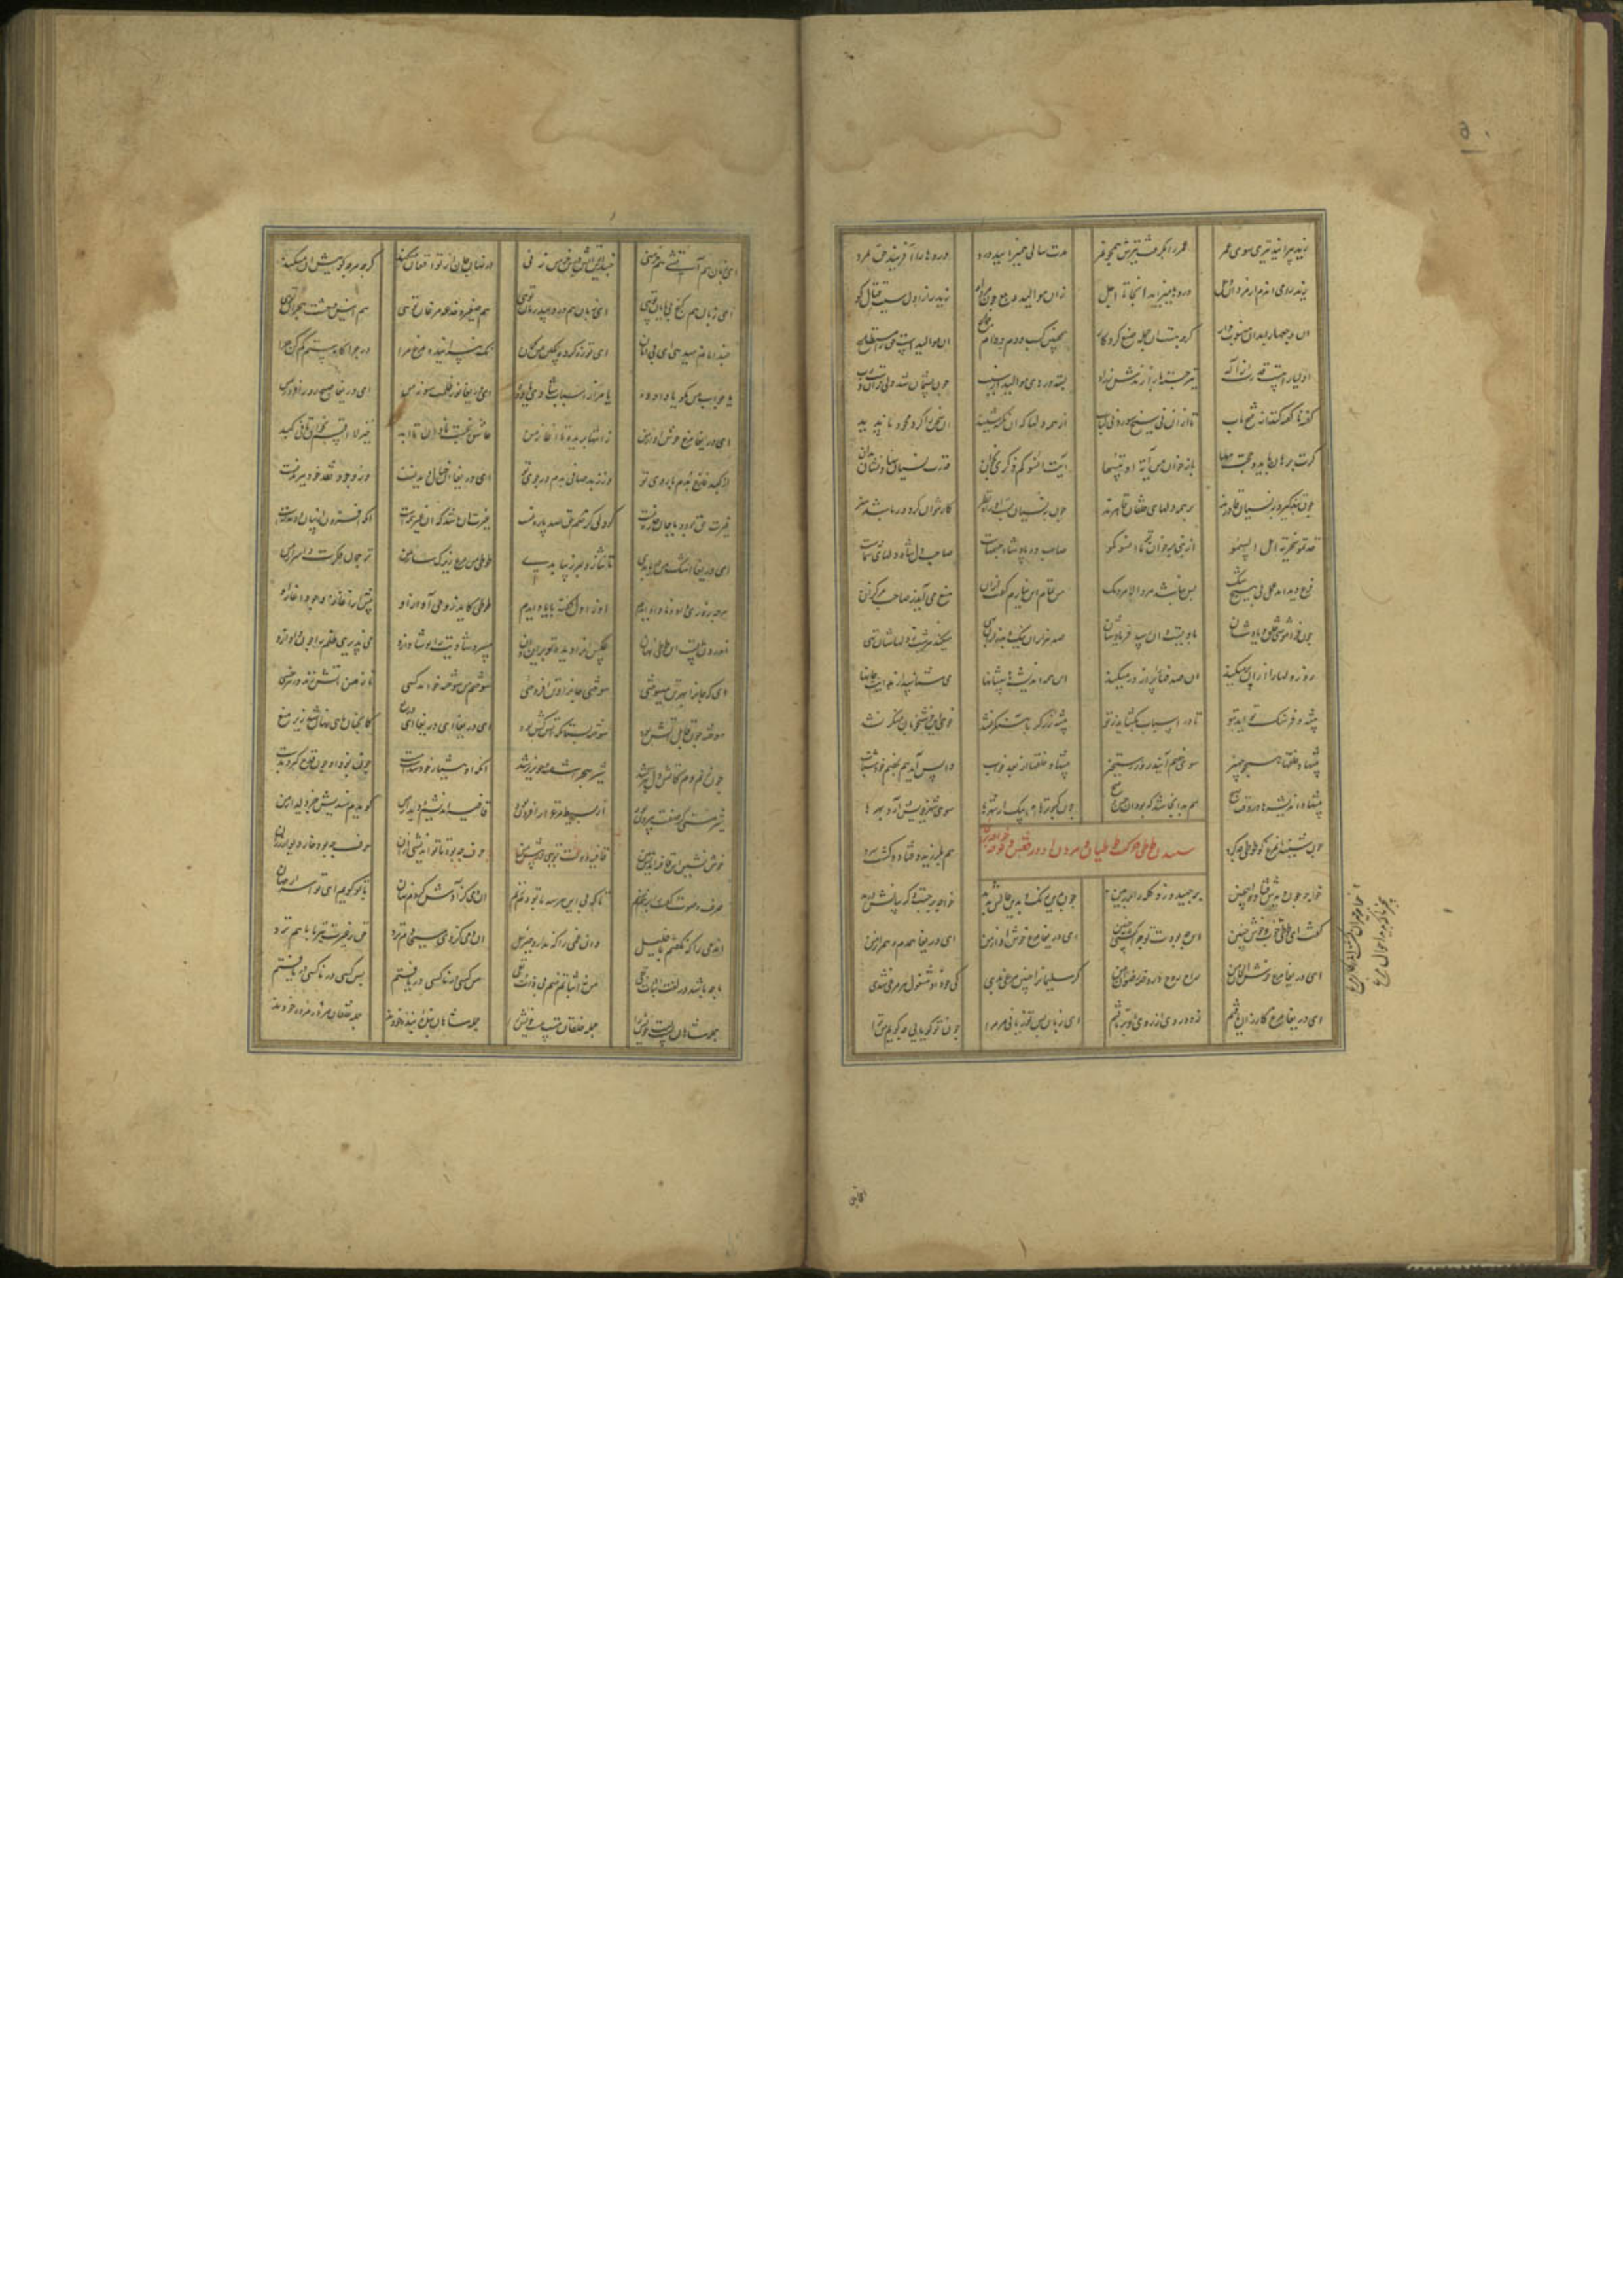 زید پرانید تیری سوی عمر عمر را بگرفت تیرش همچو نمر مدت سالی همیزایید درد دردها را آفریند حق نه مرد
زید رامی آندم ار مرد از وجل دردها میزاید آنجا تا اجل زان موالید وجع چون مرد او زید را ز اول سبب قتال گو
آن وجعها را بدو منسوب دار گرچه هست آن جمله صنع کردگار همچنین کسب و دم و دام و جماع آن موالیدست حق را مستطاع
اولیا را هست قدرت از اله تیر جسته باز آرندش ز راه بسته درهای موالید از سبب چون پشیمان شد ولی زان دست رب
گفته ناگفته کند از فتح باب تا از آن نی سیخ سوزد نی کباب از همه دلها که آن نکته شنید آن سخن را کرد محو و ناپدید
گرت برهان باید و حجت مها باز خوان من آیة او ننسها آیت انسوکم ذکری بخوان قدرت نسیان نهادنشان بدان
چون بتذکیر و بنسیان قادرند بر همه دلهای خلقان قاهرند چون بنسیان بست او راه نظر کار نتوان کرد ور باشد هنر
خذتمو سخریة اهل السمو از نبی برخوان تا انسوکمو صاحب ده پادشاه جسمهاست صاحب دل شاه دلهای شماست
فرع دید آمد عمل بی هیچ شک پس نباشد مردم الا مردمک من تمام این نیارم گفت از آن منع می آید ز صاحب مرکزان
چون فراموشی خلق و یادشان با ویست و او رسد فریادشان صد هزاران نیک و بد را آن بهی میکند هر شب ز دلهاشان تهی
روز دلها را از آن پر میکند آن صدفها را پر از در میکند آن همه اندیشه پیشانها می شناسند از هدایت جانها
پیشه و فرهنگ تو آید بتو تا در اسباب بگشاید بتو پیشه زرگر بآهنگر نشد خوی این خوشخو بآن منکر نشد
پیشها و خلقها همچون جهیز سوی خصم آیند روز رستخیز پیشها و خلقها از بعد خواب واپس آید هم بخصم خود شتاب
پیشها و اندیشها در وقت صبح هم بدانجا شد که بود آن حسن و قبح چون کبوترهای پیک از شهرها سوی شهر خویش آرد بهرها
شنیدن طوطی حرکت طوطیان و مردن او در قفس و نوحه خواجه
چون شنید آن مرغ کان طوطی چه کرد هم بلرزید و فتاد و گشت سرد
خواجه چون دیدش فتاده همچنین برجهید و زد کله را بر زمین چون بدین رنگ و بدین حالش بدید خواجه برجست و گریبان را درید
گفت ای طوطی خوب و خوش حنین این چه بودت این چرا گشتی چنین ای دریغا مرغ خوش آواز من ای دریغا همدم و همراز من
ای دریغا مرغ خوش الحان من راح روح و روضه رضوان من گر سلیمان را چنین مرغی بدی کی خود او مشغول آن مرغان شدی
ای دریغا مرغ کارزان یافتم زود روی از روی او برتافتم ای زبان تو بس زیانی مر مرا چون توی گویا چه گویم من ترا
ای زبان هم آتش و هم خرمنی چند این آتش درین خرمن زنی در نهان جان از تو افغان میکند گرچه هرچه گوییش آن میکند
ای زبان هم گنج بی پایان توی ای زبان هم درد بی درمان توی هم صفیر و خدعه مرغان توی هم انیس وحشت هجران توی
چند امانم میدهی ای بی امان ای تو زه کرده بکین من کمان نک بپرانیده مرغ مرا در چراگاه ستم کم کن چرا
یا جواب من بگو یا داد ده یا مرا ز اسباب شادی یاد ده ای دریغا نور ظلمت سوز من ای دریغا صبح روز افروز من
ای دریغا مرغ خوش پرواز من ز انتها پریده تا آغاز من عاشق رنجست نادان تا ابد خیز لا اقسم بخوان تا فی کبد
از کبد فارغ بدم با روی تو وز زبد صافی بدم در جوی تو این دریغاها خیال دیدنست وز وجود نقد خود ببریدنست
غیرت حق بود و با حق چاره نیست کو دلی کز حکم حق صد پاره نیست غیرت آن باشد که آن غیر همه است آنکه افزون از بیان و دمدمه است
ای دریغا اشک من دریا بدی تا نثار دلبر زیبا بدی طوطی من مرغ زیرکسار من ترجمان فکرت و اسرار من
هرچه روزی داد و ناداد آیدم او ز اول گفته تا یاد آیدم طوطی کاید ز وحی آواز او پیش از آغاز وجود آغاز او
اندرون تست آن طوطی نهان عکس او را دیده تو بر این و آن میبرد شادیت را تو شاد ازو می پذیری ظلم را چون داد ازو
ای که جان را بهر تن میسوختی سوختی جان را و تن افروختی سوختم من سوخته خواهد کسی تا ز من آتش زند اندر خسی
سوخته چون قابل آتش بود سوخته بستان که آتش کش بود ای دریغا ای دریغا ای دریغ کانچنان ماهی نهان شد زیر میغ
چون زنم دم کآتش دل تیز شد شیر هجر آشفته و خونریز شد آنکه او هشیار خود تندست و مست چون بود چون او قدح گیرد بدست
شیر مستی کز صفت بیرون بود از بسیط مرغزار افزون بود قافیه اندیشم و دلدار من گویدم مندیش جز دیدار من
خوش نشین ای قافیه اندیش من قافیه دولت توی در پیش من حرف چه بود تا تو اندیشی از آن حرف چه بود خار دیوار رزان
حرف و صوت و گفت را بر هم زنم تا که بی این هر سه با تو دم زنم آن دمی کز آدمش کردم نهان با تو گویم ای تو اسرار جهان
آن دمی را که نگفتم با خلیل و آن غمی را که نداند جبرئیل آن دمی کز وی مسیحا دم نزد حق ز غیرت نیز بی ما هم نزد
ما چه باشد در لغت اثبات و نفی من نه اثباتم منم بی ذات و نفی من کسی در ناکسی دریافتم پس کسی در ناکسی دربافتم
جمله شاهان پست پست خویش را جمله خلقان مست مست خویش را جمله شاهان بنده بنده خودند جمله خلقان مرده مرده خودند